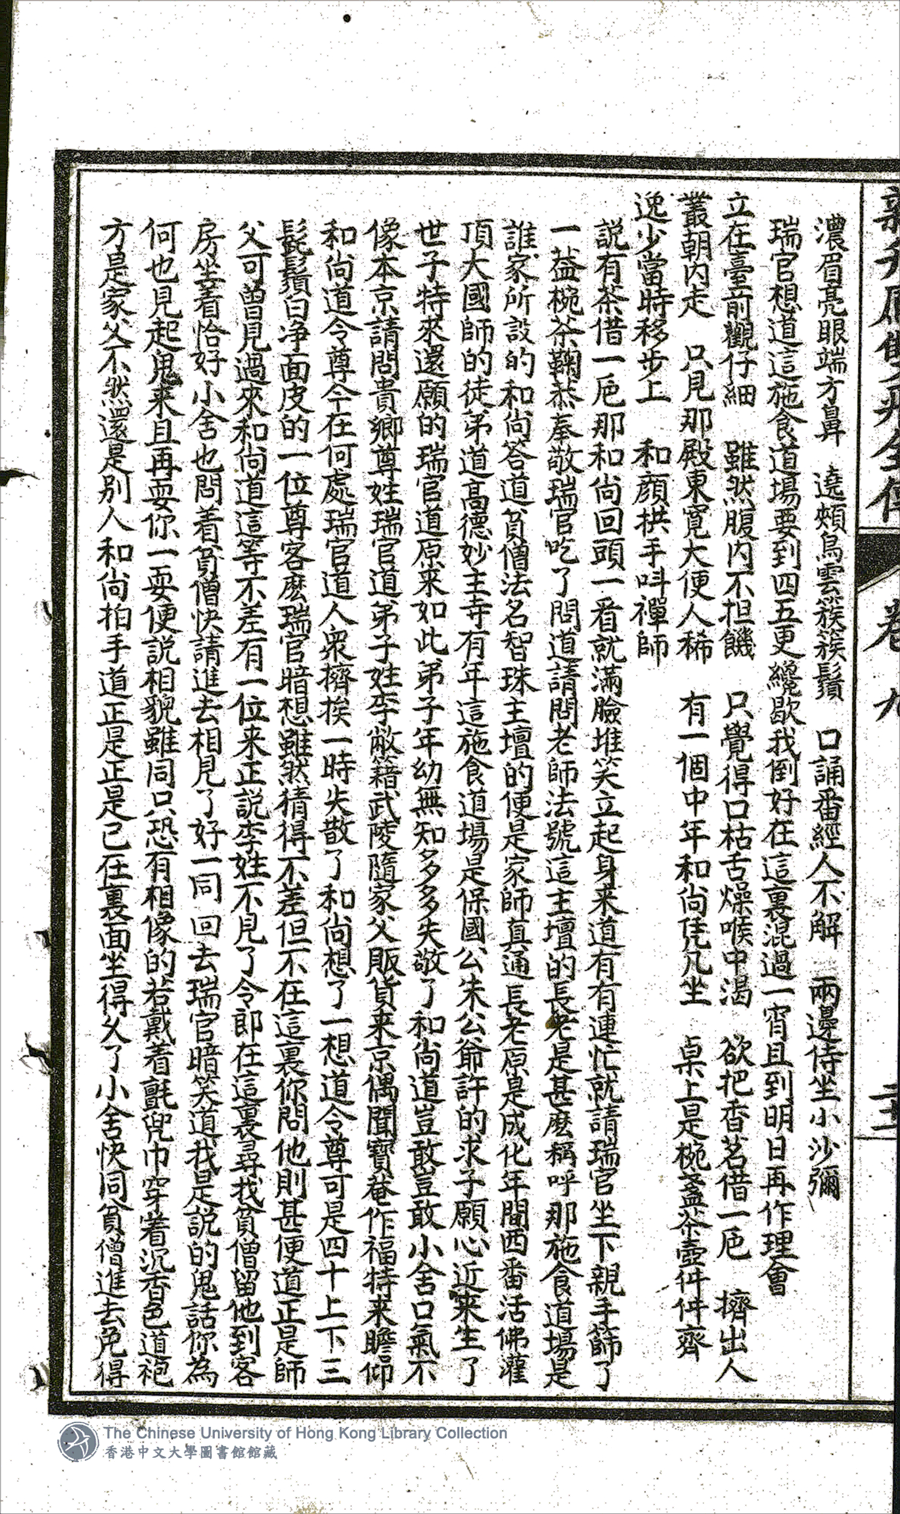 濃眉亮眼端方鼻　遶頰烏雲簇簇鬚　口誦番經人不解　兩邊侍坐小沙彌
瑞官想道這施食道場要到四五更纔歇我倒好在這裏混過一宵且到明日再作理會
立在臺前觀仔細　雖然腹內不担饑　只覺得口枯舌燥喉中渴　欲把香茗借一卮　擠出人
叢朝內走　只見那殿東寬大便人稀　有一個中年和尚凭几坐　桌上是椀盞茶壺件件齊
逸少當時移步上　和顏拱手呌禪師
說有茶借一卮那和尚回頭一看就滿臉堆笑立起身来道有有連忙就請瑞官坐下親手篩了
一葢椀茶鞠恭奉敬瑞官吃了問道請問老師法號這主壇的長老是甚麽稱呼那施食道場是
誰家所設的和尚答道貧僧法名智珠主壇的便是家師真通長老原是成化年間西番活佛灌
頂大國師的徒弟道高德妙主寺有年這施食道場是保國公朱公爺許的求子願心近来生了
世子特來還願的瑞官道原来如此弟子年幼無知多多失敬了和尚道豈敢豈敢小舍口氣不
像本京請問貴鄉尊姓瑞官道弟子姓李敝籍武陵隨家父販貨来京偶聞寶菴作福特来瞻仰
和尚道令尊今在何處瑞官道人衆擠挨一時失散了和尚想了一想道令尊可是四十上下三
髭鬚白净面皮的一位尊客麽瑞官暗想雖然猜得不差但不在這裏你問他則甚便道正是師
父可曾見過來和尚道這等不差有一位来正說李姓不見了令郎在這裏尋找貧僧留他到客
房坐着恰好小舍也問着貧僧快請進去相見了好一同回去瑞官暗笑道我是說的鬼話你為
何也見起鬼来且再耍你一耍便說相貌雖同只恐有相像的若戴着氈兜巾穿着沉香色道袍
方是家父不然還是別人和尚拍手道正是正是已在裏面坐得久了小舍快同貧僧進去免得
卷九
The Chinese University of Hong Kong Library Collection
香港中文大學圖書館館藏